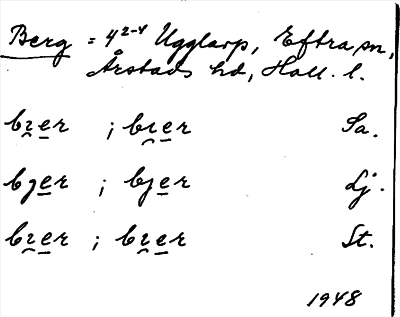 Berg = 4²⁻⁴ Ugglarp, Eftra sn,
Årstads hd, Hall. l.
bɪ̯er ; bɪ̯er Sa.
bjer ; bjer Lj.
bɪ̯er ; bɪ̯er St.
1948